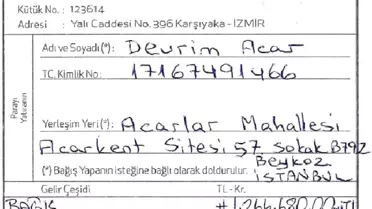 Kütük No. : 123614
Adresi : Yalı Caddesi No. 396 Karşıyaka - İZMİR
Parayı Yatıranın
Adı ve Soyadı (*) : Devrim Acar
T.C. Kimlik No : 17167491466
Yerleşim Yeri (*) : Acarlar Mahallesi
Acarkent Sitesi 57. Sokak B792
Beykoz
(*) Bağış Yapanın isteğine bağlı olarak doldurulur. İSTANBUL
Gelir Çeşidi TL - Kr.
BAĞIŞ #1.266.680,00.-TL